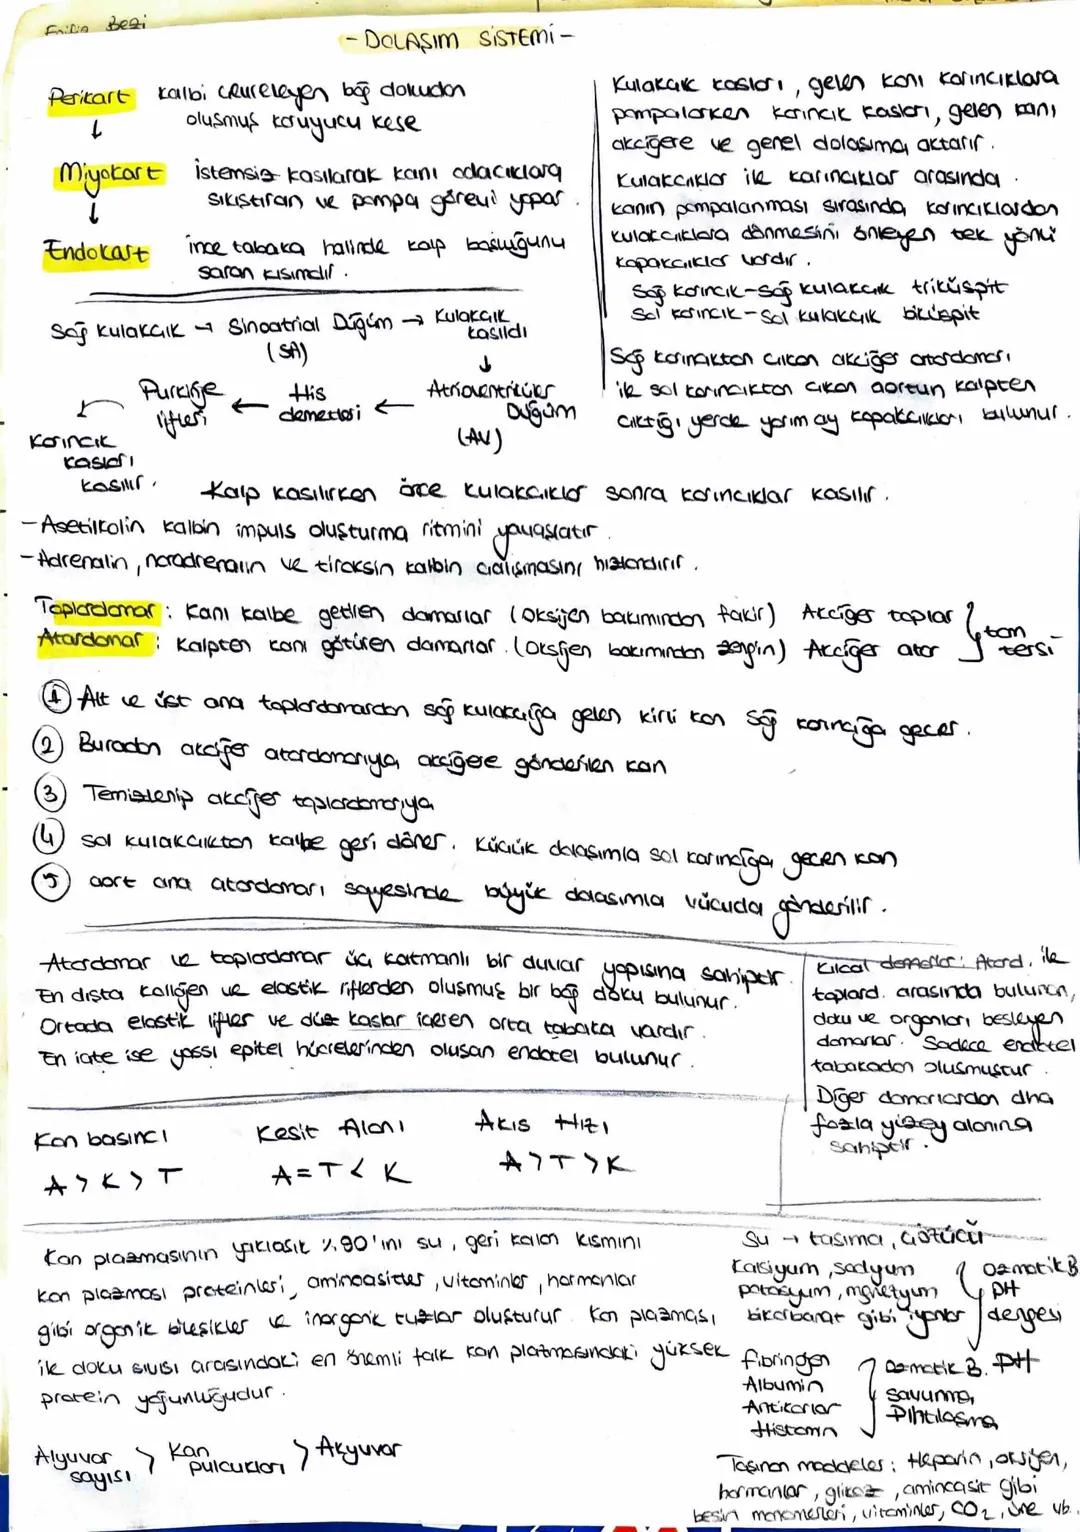 Bezi
- DOLAŞIM SİSTEMİ -
Perikart kalbi çevreleyen bağ dokudan
oluşmuş koruyucu kese
↓
Miyokart istemsiz kasılarak kanı odacıklara
sıkıştıran ve pompa görevi yapar.
↓
Endokart ince tabaka halinde kalp boşluğunu
saran kısımdır.
Sağ kulakçık → Sinoatrial Düğüm → Kulakçık
(SA) kasıldı
↓
Purkinje ← His ← Atrioventriküler
lifleri demetleri Düğüm
(AV)
Karıncık
kasları
kasılır.
Kulakçık kasları, gelen kanı karıncıklara
pompalarken karıncık kasları, gelen kanı
akciğere ve genel dolaşıma aktarır.
Kulakcıklar ile karıncıklar arasında
kanın pompalanması sırasında karıncıklardan
kulakcıklara dönmesini önleyen tek yönlü
kapakcıklar vardır.
Sağ karıncık-Sağ kulakcık triküspit
Sol karıncık-Sol kulakcık biküspit
Sağ karıncıktan çıkan akciğer atardamarı
ile sol karıncıktan çıkan aortun kalpten
çıktığı yerde yarım ay kapakcıkları bulunur.
Kalp kasılırken önce kulakcıklar sonra karıncıklar kasılır.
- Asetilkolin kalbin impuls oluşturma ritmini yavaşlatır.
- Adrenalin, noradrenalin ve tiroksin kalbin çalışmasını hızlandırır.
Toplardamar : Kanı kalbe getiren damarlar (Oksijen bakımından fakir) Akciğer toplar } tam
Atardamar : Kalpten kanı götüren damarlar. (Oksijen bakımından zengin) Akciğer atar } tersi
① Alt ve üst ana toplardamardan sağ kulakçığa gelen kirli kan sağ karıncığa geçer.
② Buradan akciğer atardamarıyla akciğere gönderilen kan
③ Temizlenip akciğer toplardamarıyla
④ sol kulakcıktan kalbe geri döner. Küçük dolaşımla sol karıncığa geçen kan
⑤ aort ana atardamarı sayesinde büyük dolaşımla vücuda gönderilir.
Atardamar ve toplardamar üç katmanlı bir duvar yapısına sahiptir.
En dışta kollojen ve elastik liflerden oluşmuş bir bağ doku bulunur.
Ortada elastik lifler ve düz kaslar içeren orta tabaka vardır.
En içte ise yassı epitel hücrelerinden oluşan endotel bulunur.
Kılcal damarlar: Atard. ile
toplard. arasında bulunan,
doku ve organları besleyen
damarlar. Sadece endotel
tabakadan oluşmuştur.
Diğer damarlardan dha
fazla yüzey alanına
sahiptir.
Kan basıncı Kesit Alanı Akış Hızı
A > K > T A = T < K A > T > K
Kan plazmasının yaklaşık %90'ını su, geri kalan kısmını
kan plazması proteinleri, aminoasitler, vitaminler, hormonlar
gibi organik bileşikler ve inorganik tuzlar oluşturur. Kan plazması
ile doku sıvısı arasındaki en önemli fark kan plazmasındaki yüksek
protein yoğunluğudur.
Alyuvar sayısı > Kan pulcukları > Akyuvar
Su → taşıma, çözücü
Kalsiyum, sodyum
potasyum, magnezyum
bikarbonat gibi iyonlar
} Ozmotik B
PH
dengesi
fibrinojen
Albumin
Antikorlar
Histamin
} Ozmotik B. PH
savunma,
Pıhtılaşma
Taşınan maddeler: Heparin, oksijen,
hormonlar, glikoz, aminoasit gibi
besin monomerleri, vitaminler, CO₂, üre vb.